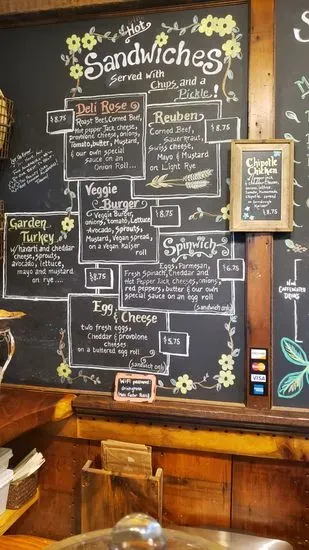 Hot
Sandwiches
Served with
Chips, and a
Pickle!
Deli Rose
Roast Beef, Corned
Beef,
Hot pepper Jack cheese,
provolone cheese, onions,
Tomato, butter, Mustard,
& our own special
sauce on an
Onion Roll....
$8.75
Reuben
Corned Beef,
Sauerkraut,
Swiss cheese,
Mayo & Mustard
on Light Rye
$8.75
Veggie
Burger
Veggie Burger,
onions, tomato, Lettuce
Avocado, sprouts,
Mustard, Vegan spread,
on a Vegan Kaiser
roll
$8.75
Garden
Turkey
w/ havarti and cheddar
cheese, sprouts,
avocado, lettuce,
mayo and mustard
on Rye....
$8.75
Spinwich
Eggs, Parmesan,
Fresh Spinach, Cheddar and
Hot Pepper Jack cheeses, onions,
red peppers, butter & our own
special sauce on an egg roll
(sandwich only)
$6.75
Egg
& Cheese
two fresh eggs,
Cheddar & provolone
cheeses
on a buttered egg roll
(sandwich only)
$5.75
Chipotle
Chicken
$8.75
WiFi password
Non
Caffeinated
Drinks
VISA